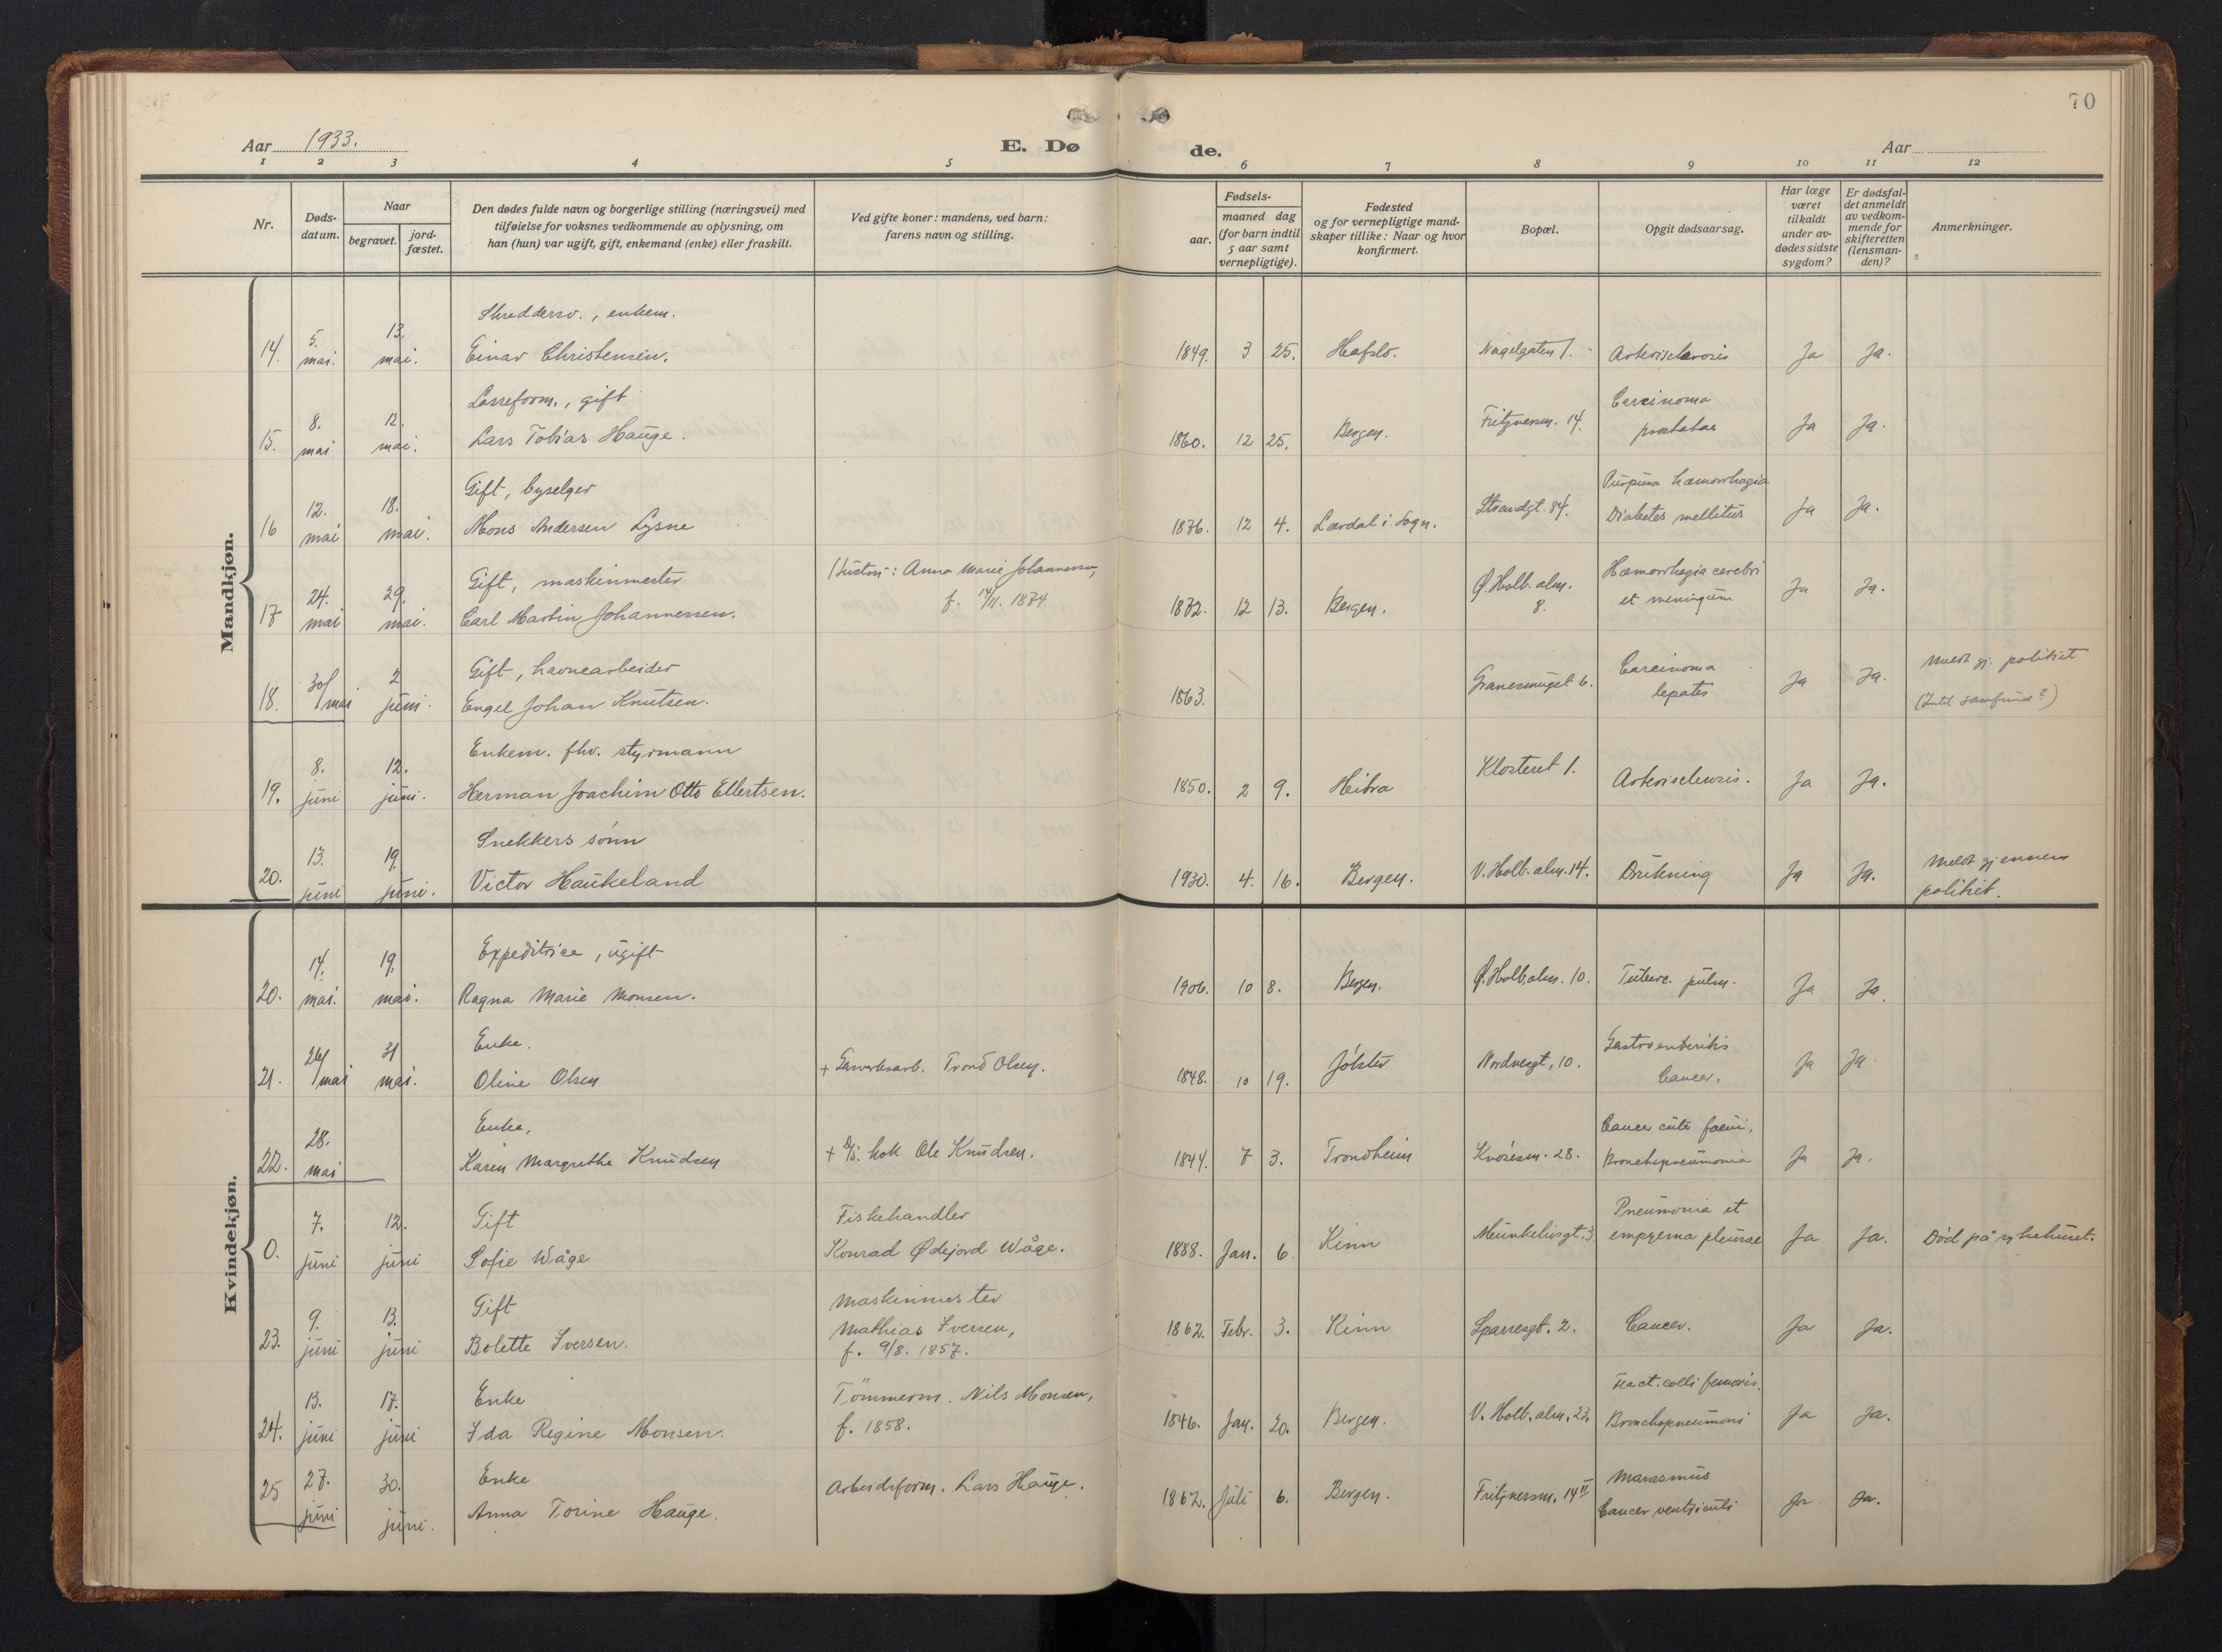 70
Aar 1933.
E. Døde.
Aar
1 2 3 4 5 6 7 8 9 10 11 12
Nr.
Døds-datum.
Naar
begravet.
jord-fæstet.
Den dødes fulde navn og borgerlige stilling (næringsvei) med
tilføielse for voksnes vedkommende av oplysning, om
han (hun) var ugift, gift, enkemand (enke) eller fraskilt.
Ved gifte koner: mandens, ved barn:
farens navn og stilling.
Fødsels-
aar.
maaned dag
(for barn indtil
5 aar samt
vernepligtige).
Fødested
og for vernepligtige mand-
skaper tillike: Naar og hvor
konfirmert.
Bopæl.
Opgit dødsaarsag.
Har læge
været
tilkaldt
under av-
dødes sidste
sygdom?
Er dødsfal-
det anmeldt
av vedkom-
mende for
skifteretten
(lensman-
den)?
Anmerkninger.
Mandkjøn.
Skreddersv., enkem.
14. 5. mai. 13. mai. Einar Christensen. 1849. 3 25. Hafslo. Nagelgaten 1. Arteriosclerosis Ja Ja.
Lasseform., gift
15. 8. mai 12. mai. Lars Tobias Hauge. 1860. 12 25. Bergen. Fritznersm. 14. Carcinoma prostatae Ja Ja.
Gift, byselger
16 12. mai 18. mai. Mons Andersen Lysne 1876. 12 4. Lærdal i Sogn. Strandgt. 84. Purpura hæmorrhagia Diabetes mellitus Ja Ja.
Gift, maskinmester
17 24. mai 29. mai. Carl Martin Johannessen. Hustru: Anna Marie Johannessen, f. 14/11. 1874. 1872. 12 13. Bergen. Ø. Holb. alm. 8. Hæmorrhagia cerebri et meningum Ja Ja.
Gift, havnearbeider
18. 30/mai 2 juni. Engel Johan Knutsen. 1863. Granesmuget 6. Carcinoma hepatis Ja Ja. Meldt gj. politiet
Enkem. fhv. styrmann
19. 8. juni 12. juni. Herman Joachim Otto Ellertsen. 1850. 2 9. Heibra Klosteret 1. Arteriosclerosis. Ja Ja.
Snekkers sønn
20. 13. juni 19. juni. Victor Haukeland 1930. 4. 16. Bergen. V. Holb. alm. 14. Drukning Ja Ja. Meldt gjennem politiet.
Kvindekjøn.
Expeditrice, ugift
20. 14. mai. 19. mai. Ragna Marie Monsen. 1906. 10 8. Bergen. Ø. Holb. alm. 10. Tuberc. pulm. Ja Ja.
Enke.
21. 26/mai 31 mai. Oline Olsen + Gasverksarb. Trond Olsen. 1848. 10 19. Jølster Nordnesgt. 10. Gastroenteritis Cancer. Ja Ja
Enke,
22. 28. mai Karen Margrethe Knudsen + D/S. kok Ole Knudsen. 1844. 7 3. Trondheim Knøsesm. 28. Cancer cutis faciei. Bronchopneumonia Ja Ja.
Gift
0. 7. juni 12. juni Sofie Wåge Fiskehandler Konrad Ødejord Wåge. 1888. Jan. 6. Kinn Munkelivsgt. 3 Pneumonia et empyema pleurae Ja Ja. Død på sykehuset.
Gift
23. 9. juni 13. juni Bolette Iversen. Maskinmester Mathias Iversen, f. 9/8. 1857. 1862. Febr. 3. Kinn Sparresgt. 2. Cancer. Ja Ja.
Enke
24. 13. juni 17. juni Ida Regine Monsen. Tømmerm. Nils Monsen, f. 1858. 1846. Jan. 20. Bergen. V. Holb. alm. 23. Fract. colli femoris. Bronchopneumoni Ja Ja.
Enke
25 27. juni 30. juni. Anna Torine Hauge. Arbeidsform. Lars Hauge. 1862. Juli 6. Bergen. Fritznersm. 14 II Marasmus Cancer ventriculi Ja Ja.